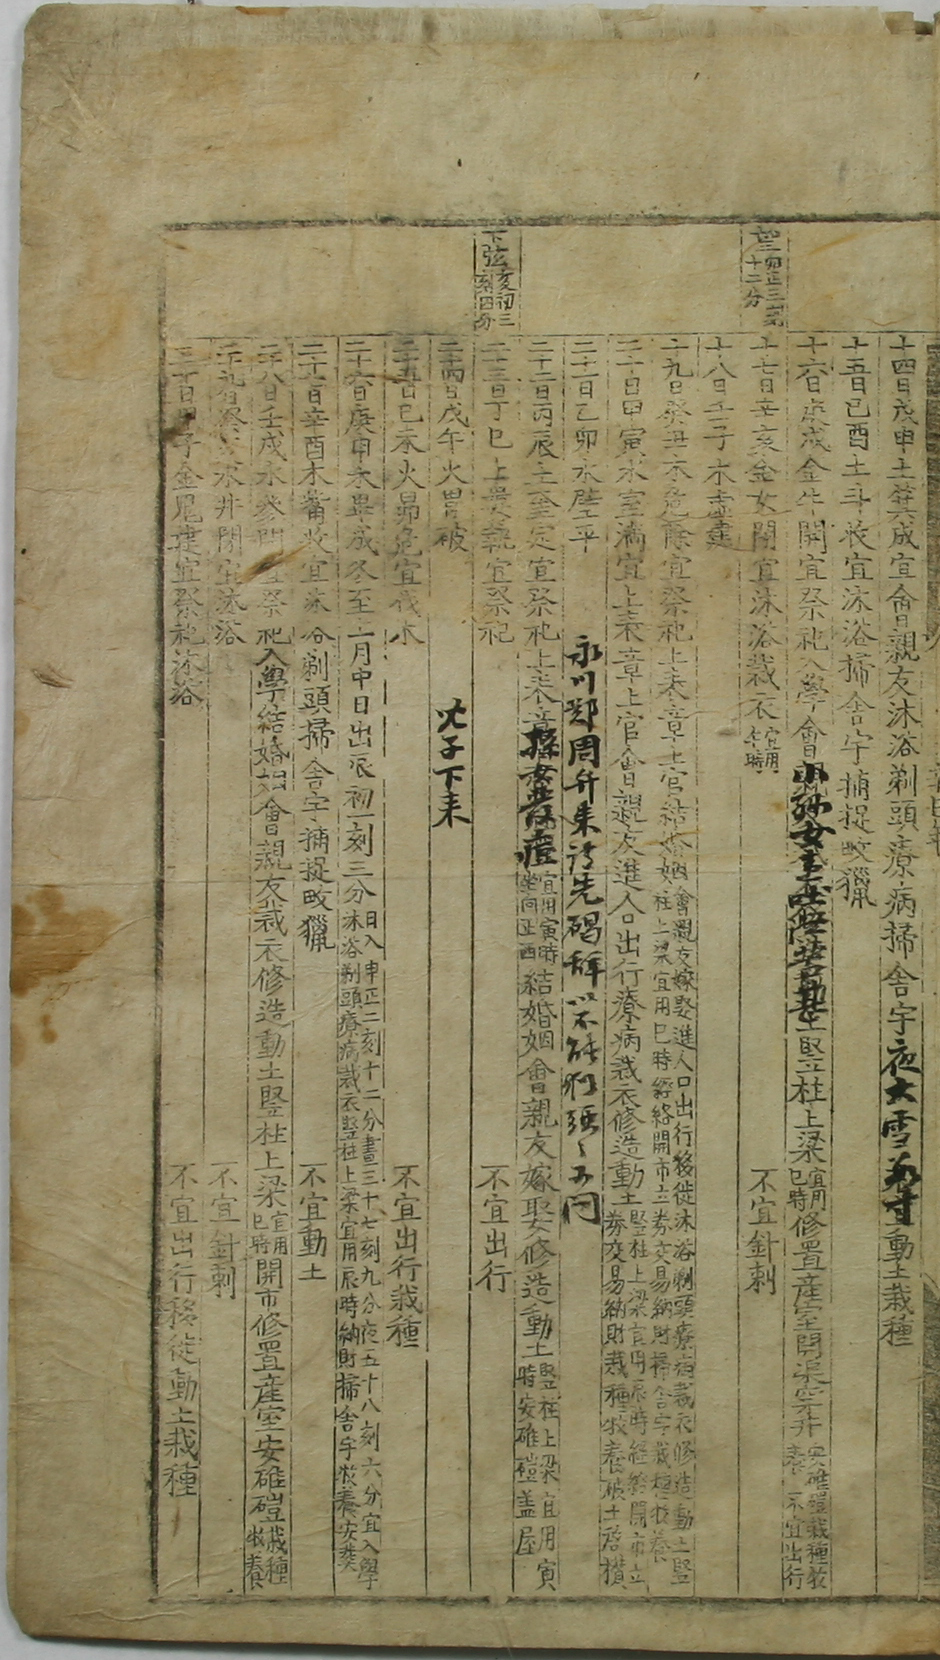 望 卯正三刻十二分
下弦 亥初三刻四分
十四日戊申土箕成宜會親友沐浴剃頭療病掃舍宇夜大雪 動土栽種
十五日己酉土斗收宜沐浴掃舍宇捕捉畋獵
十六日庚戌金牛開宜祭祀入學會 竪柱上梁宜用巳時修置產室開渠穿井安碓磑栽種牧養 不宜出行
十七日辛亥金女閉宜沐浴裁衣宜用午時 不宜針刺
十八日壬子木虛建
十九日癸丑木危除宜祭祀上表章上官結婚姻會親友嫁娶進人口出行移徙沐浴剃頭療病裁衣修造動土竪柱上梁宜用巳時經絡開市立券交易納財掃舍宇栽種牧養
二十日甲寅水室滿宜上表章上官會親友進人口出行療病裁衣修造動土竪柱上梁宜用辰時經絡開市立券交易納財栽種牧養破土啓欑
二十一日乙卯水壁平 永川鄭周弁來請先碣辭以不能
二十二日丙辰土奎定宜祭祀上表章 宜用寅時坐向正西結婚姻會親友嫁娶修造動土竪柱上梁宜用寅時安碓磑蓋屋
二十三日丁巳土婁執宜祭祀 不宜出行
二十四日戊午火胃破 子下來
二十五日己未火昴危宜伐木 不宜出行栽種
二十六日庚申木畢成冬至十一月中日出辰初一刻三分日入申正二刻十二分晝三十七刻九分夜五十八刻六分宜入學沐浴剃頭療病裁衣竪柱上梁宜用辰時納財掃舍宇牧養安葬
二十七日辛酉木觜收宜沐浴剃頭掃舍宇捕捉畋獵 不宜動土
二十八日壬戌水參開宜祭祀入學結婚姻會親友裁衣修造動土竪柱上梁宜用巳時開市修置產室安碓磑栽種牧養
二十九日癸亥水井閉宜沐浴 不宜針刺
三十日甲子金鬼建宜祭祀沐浴 不宜出行移徙動土栽種